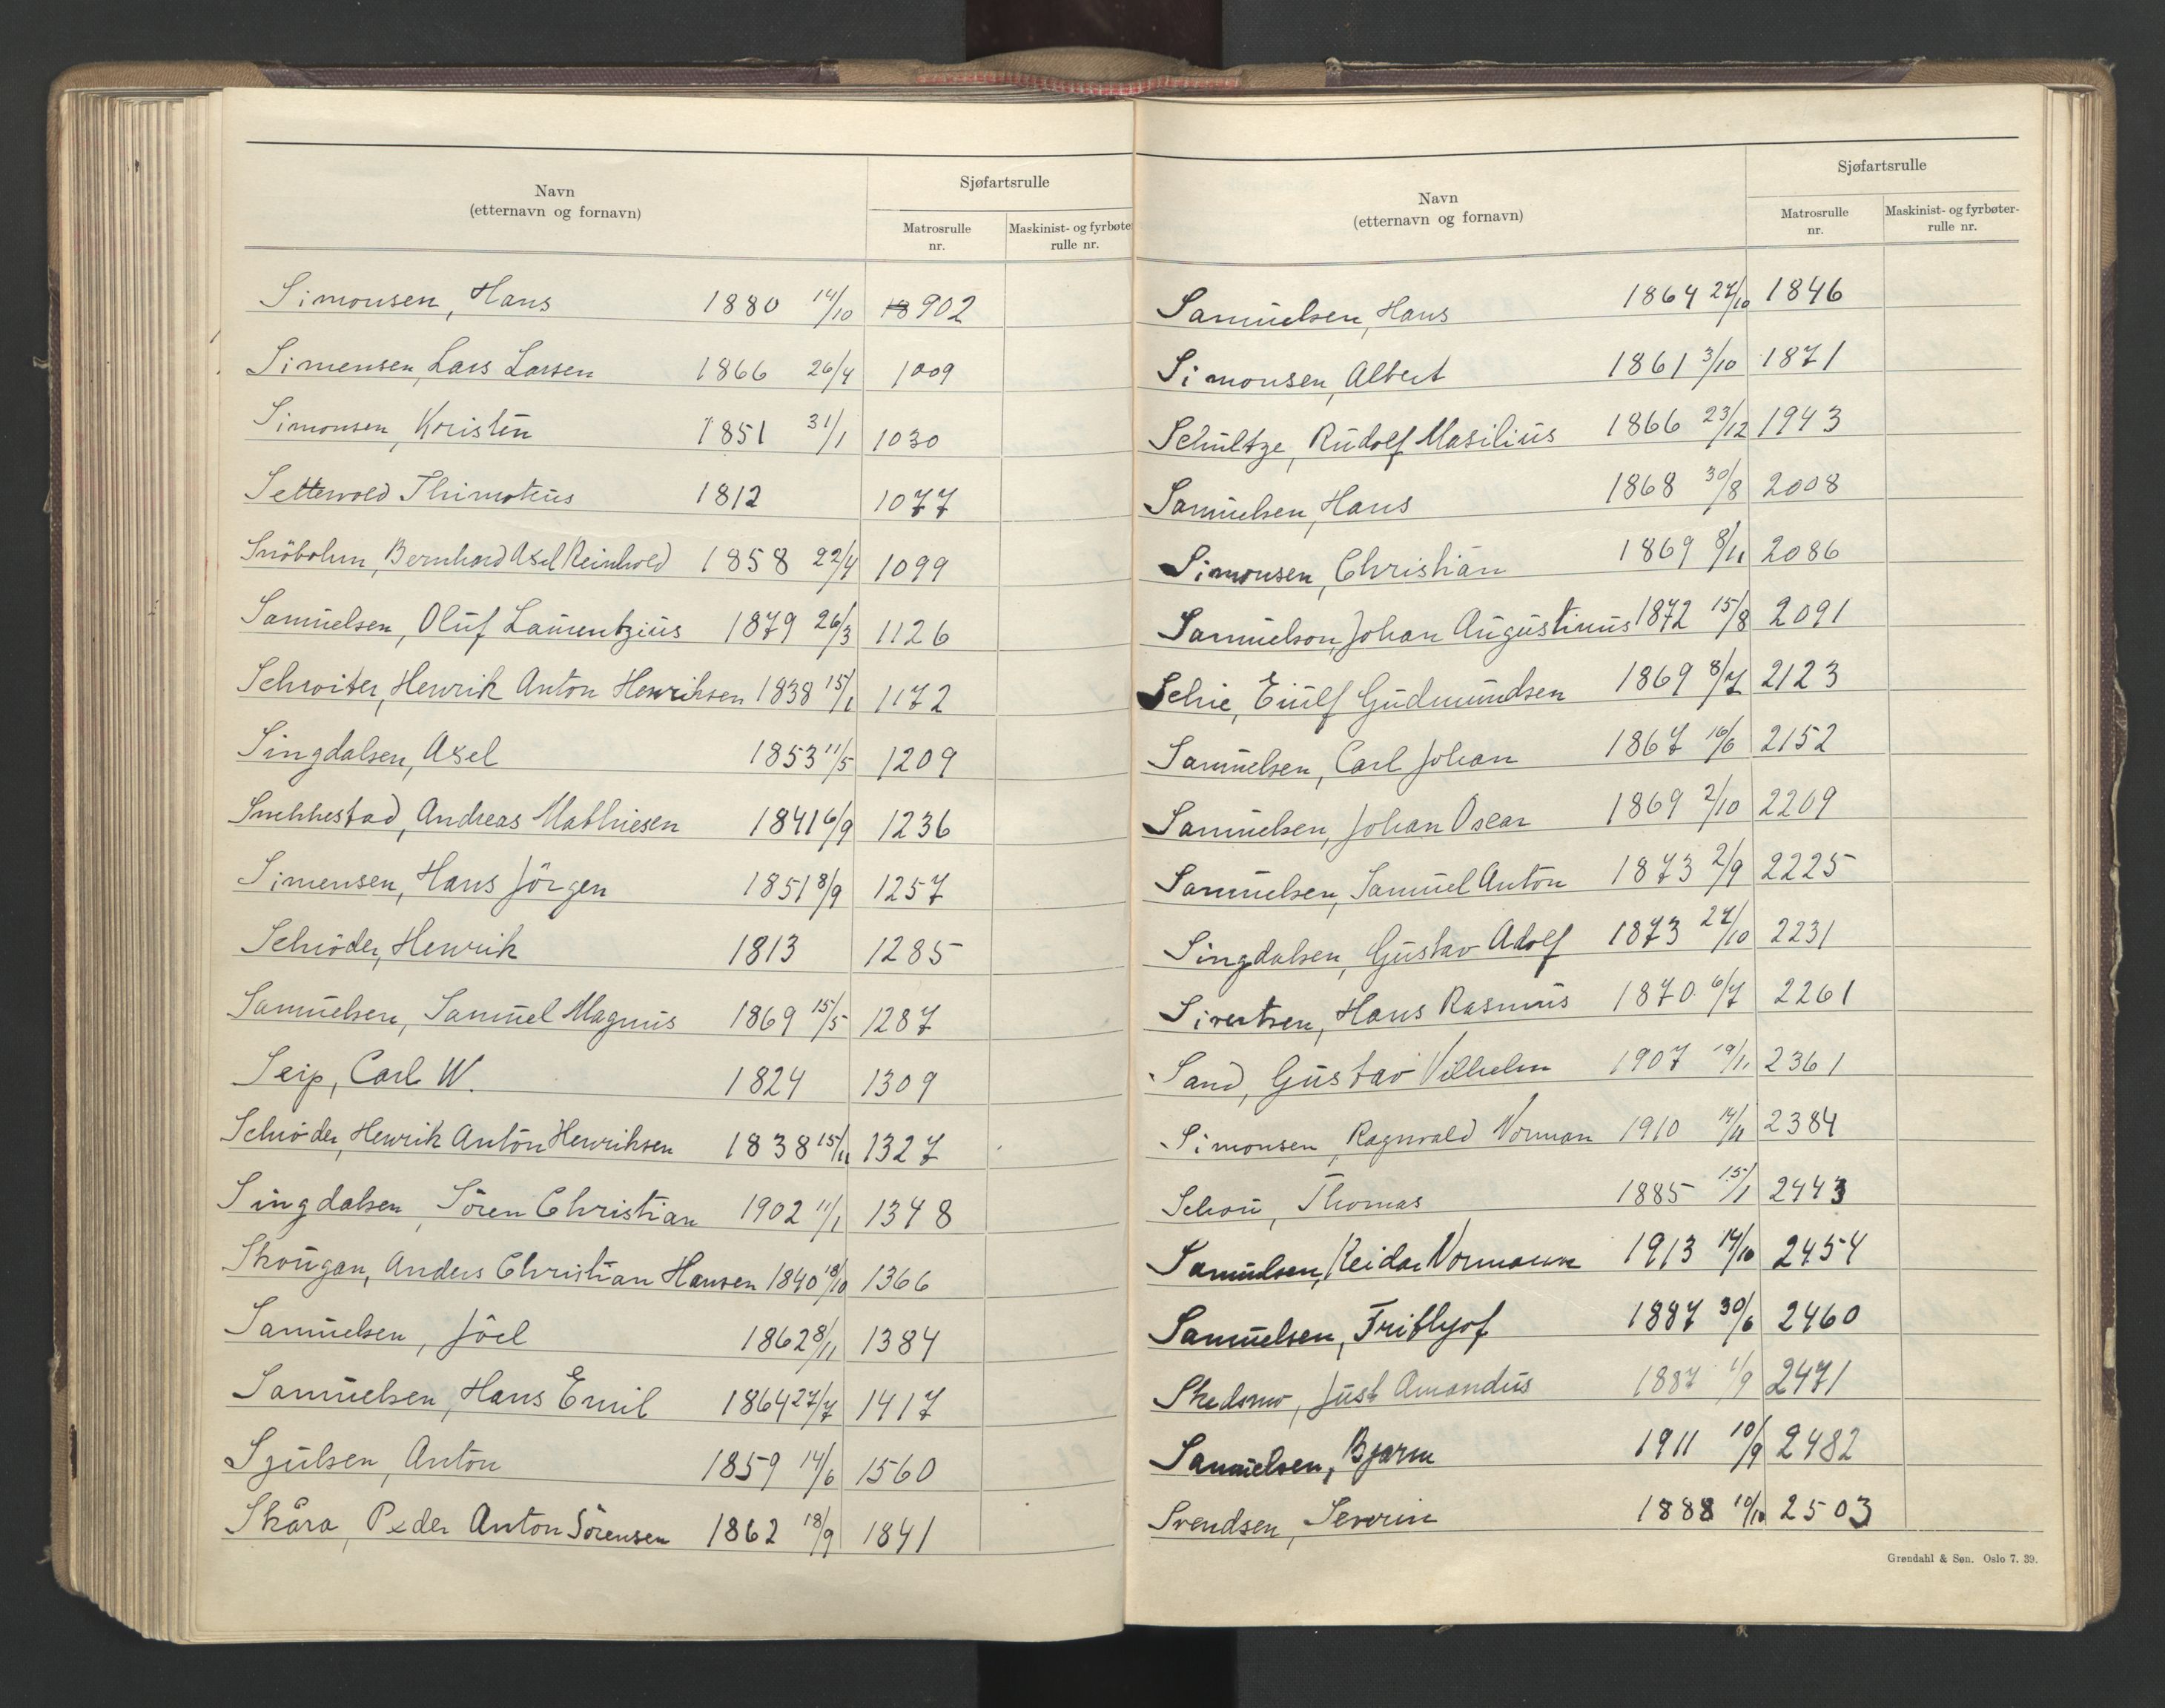 Navn
(etternavn og fornavn)
Sjøfartsrulle
Matrosrulle
nr.
Maskinist- og fyrbøter
rulle nr.
Simonsen, Hans 1880 14/10 18902
Simensen, Lars Larsen 1866 26/4 1009
Simonsen, Kristen 1851 31/1 1030
Settevold Thimoteus 1812 1077
Snöbohm, Bernhard Axel Reinhold 1858 22/4 1099
Samuelsen, Oluf Laurentzius 1879 26/3 1126
Schrøiter, Henrik Anton Henriksen 1838 15/1 1172
Singdalsen, Axel 1853 11/5 1209
Snekkestad, Andreas Mathiesen 1841 6/9 1236
Simensen, Hans Jörgen 1851 8/9 1257
Schröder, Henrik 1813 1285
Samuelsen, Samuel Magnus 1869 15/5 1287
Seip, Carl W. 1824 1309
Schröder, Henrik Anton Henriksen 1838 15/11 1327
Singdalsen, Sören Christian 1902 11/1 1348
Skougan, Anders Christian Hansen 1840 18/10 1366
Samuelsen, Joel 1862 8/11 1384
Samuelsen, Hans Emil 1864 27/7 1417
Sjulsen, Anton 1859 14/6 1560
Skåra, Peder Anton Sörensen 1862 18/9 1841
Navn
(etternavn og fornavn)
Sjøfartsrulle
Matrosrulle
nr.
Maskinist- og fyrbøter-
rulle nr.
Samuelsen, Hans 1864 27/10 1846
Simonsen, Albert 1861 3/10 1871
Schultze, Rudolf Masilius 1866 23/12 1943
Samuelsen, Hans 1868 30/8 2008
Simonsen, Christian 1869 8/11 2086
Samuelson, Johan Augustinus 1872 15/8 2091
Schie, Eiulf Gudmundsen 1869 8/7 2123
Samuelsen, Carl Johan 1867 16/6 2152
Samuelsen, Johan Oscar 1869 2/10 2209
Samuelsen, Samuel Anton 1873 2/9 2225
Singdalsen, Gustav Adolf 1873 27/10 2231
Sivertsen, Hans Rasmus 1870 6/7 2261
Sand, Gustav Vilhelm 1907 19/11 2361
Simonsen, Ragnvald Norman 1910 14/11 2384
Schou, Thomas 1885 15/1 2443
Samuelsen, Reidar Normann 1913 14/10 2454
Samuelsen, Frithjof 1887 30/6 2460
Skedsmo, Just Amandus 1887 1/9 2471
Samuelsen, Bjarne 1911 10/9 2482
Svendsen, Severin 1888 10/10 2503
Grøndahl & Søn. Oslo 7. 39.